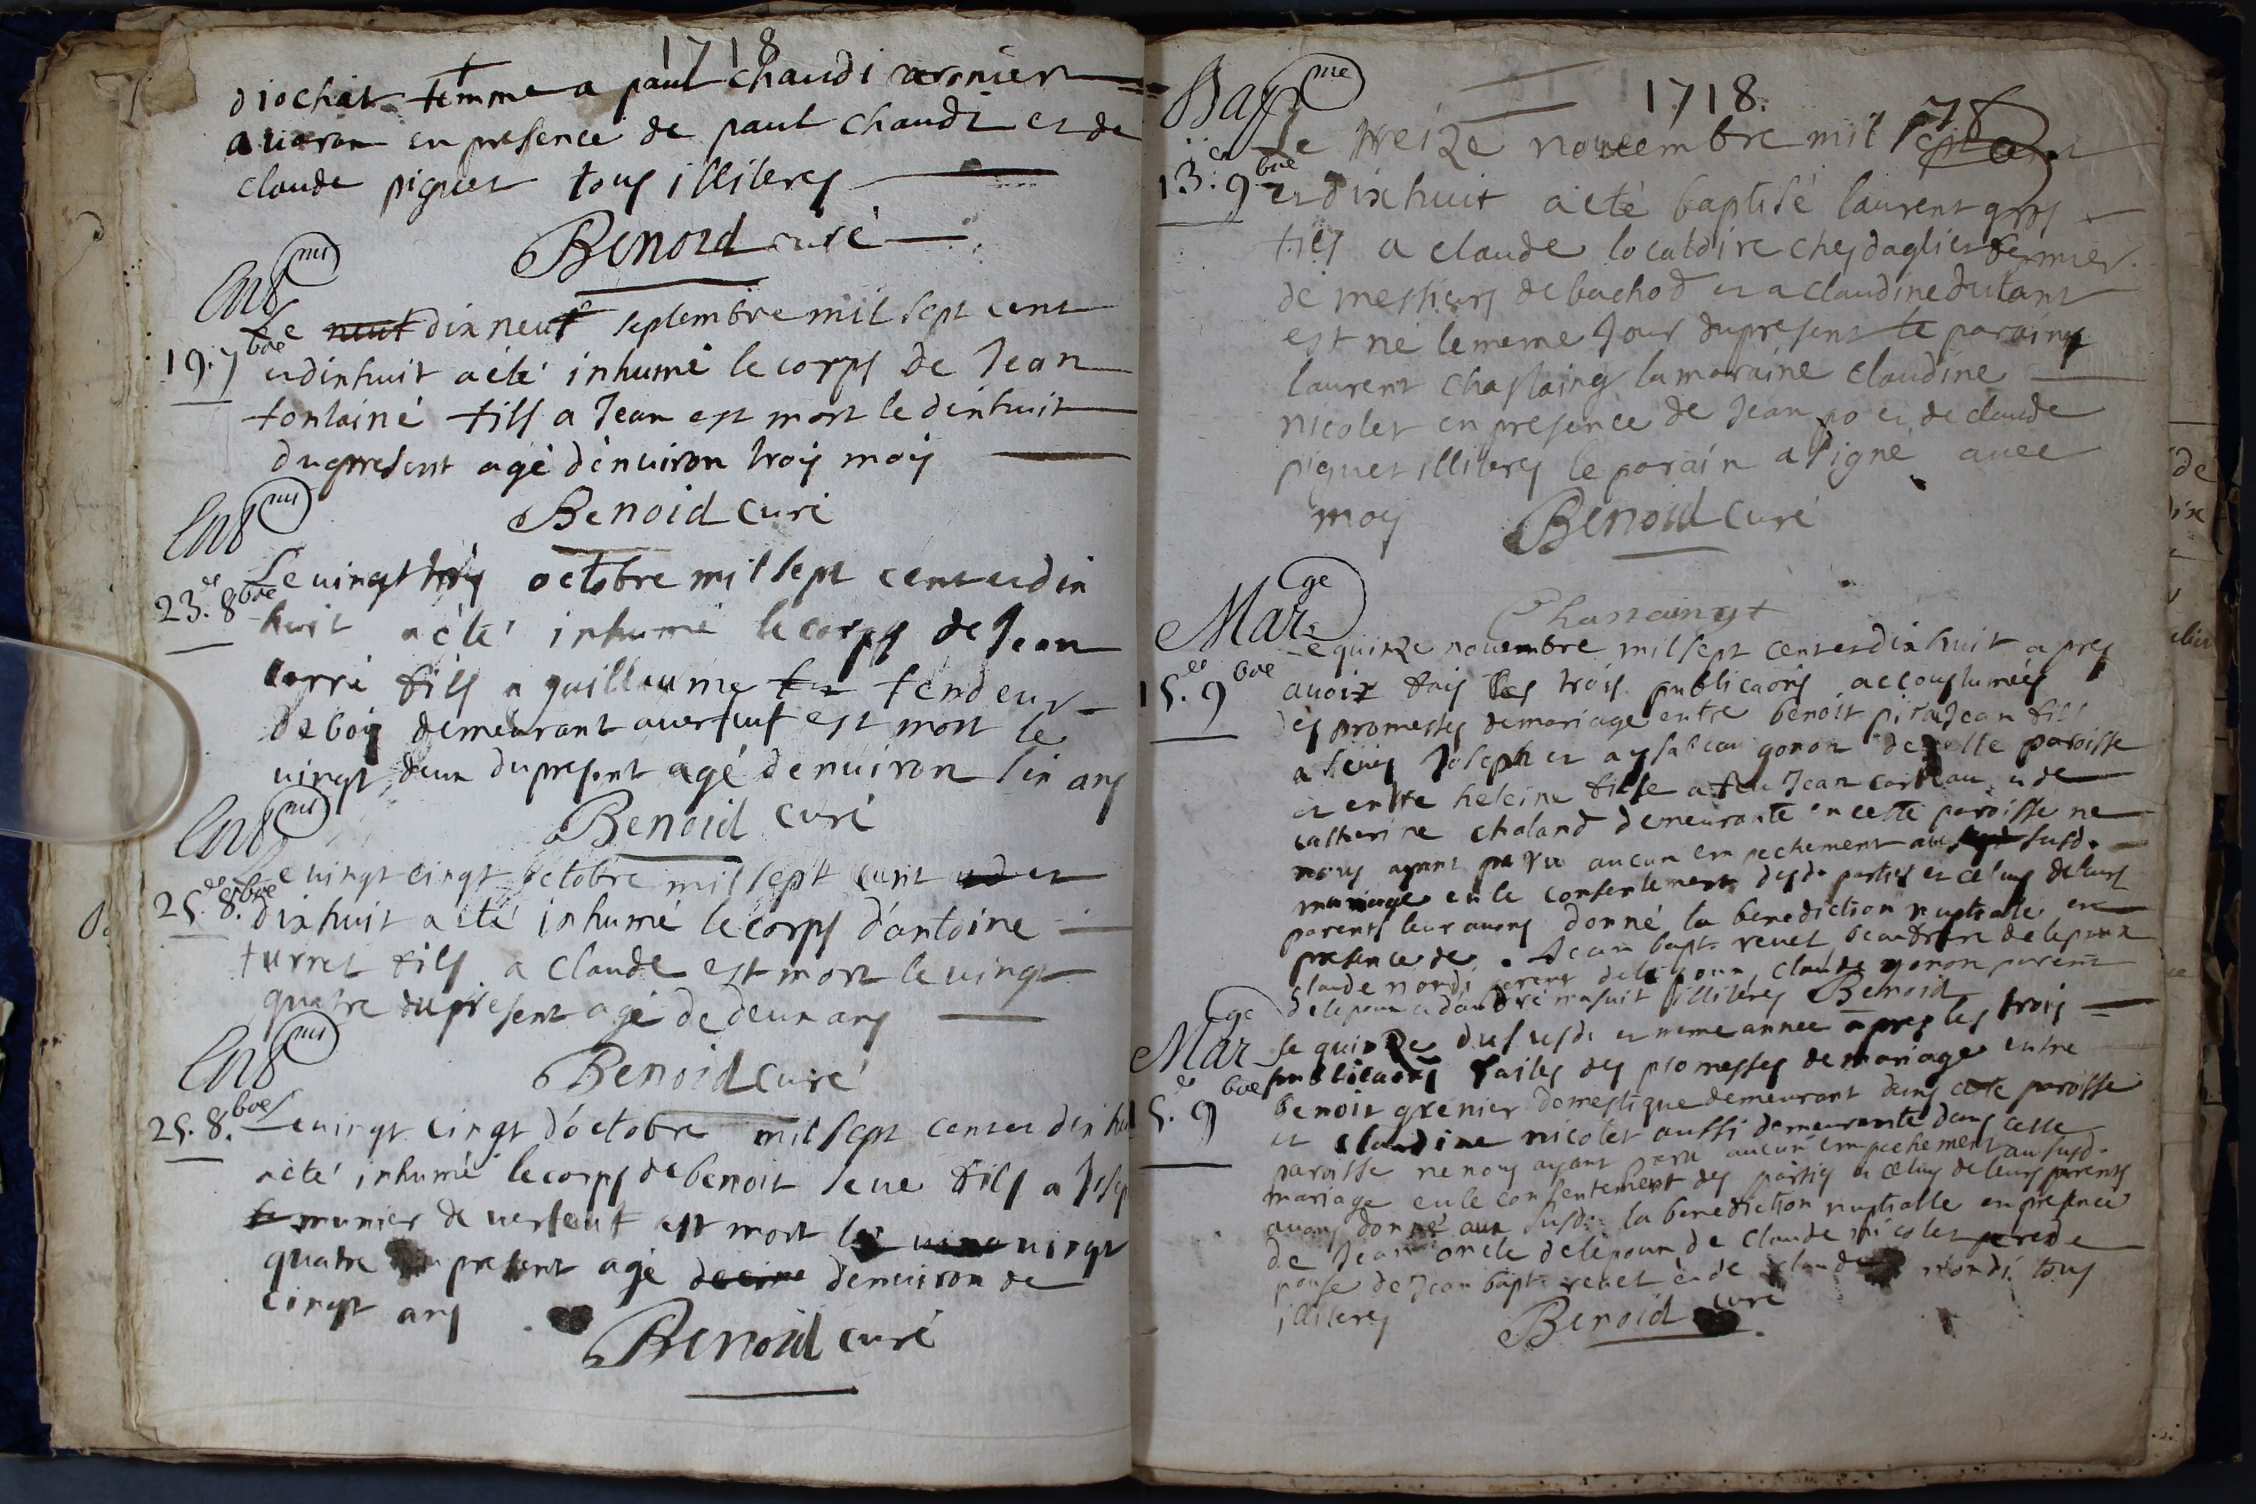 1718
diochat femme a paul chaudi
en presence de paul chaudi et de
claude piguet tous illiteres
Benoid curé
Ent mt
19. 7bre
Le neuf dix neuf septembre mil sept cent
et dixhuit a été inhumé le corps de Jean
fontaine fils a Jean est mort le dixhuit
du present agé d'enuiron trois mois
Benoid curé
Ent mt
23.e 8bre
Le uingt trois octobre mil sept cent et dix
huit a été inhumé le corps de Jean
corré fils a guillaume fendeur
de bois demeurant a uerseuf est mort le
uingt deux du present agé denuiron six ans
Benoid curé
Ent mt
25.e 8.bre
Le uingt cinqt octobre mil sept cent et
dixhuit a été inhumé le corps d'antoine
turret fils a claude est mort le uingt
quatre du present agé de deux ans
Benoid curé
Ent mt
25. 8.bre
Le uingt cinqt d'octobre mil sept cent et dix hui
a été inhumé le corps de benoit seue fils a Josep
munier de uerseut est mort le uingt
quatre du present agé denuiron de
cinqt ans
Benoid curé
1718.
78
Bap me
13.e 9bre
Le treize nouembre mil sept cent
et dixhuit a été baptisé laurent gros
fils a claude locatdire ches daglier fermier
de messieurs de bachod et a claudine dutant
est né le meme Jour du present le paraing
laurent chaslaing la maraine claudine
nicolet en presence de Jean po et de claude
piguet illiteres le parain a signé auec
moy Benoid curé
Chassaingt
Mar ge
15.e 9bre
Le quinze nouembre mil sept cent et dix huit apres
auoir fais les trois publicaõns accoustumées
des promesses de mariage entre benoit pitiaJean fils
a Joseph et a ysabeau gonon de cette paroisse
et entre heleine fille a feu Jean corteau et de
catherine chaland demeurante en cette paroisse ne
nous ayant paru aucun empechement au susd.
mariage eu le consentement desd. parties et celuy de leurs
parents leur auons donné la benediction nuptialle en
presence de Jean bapt. reuet beaufrere de lepoux
Claude nordi parent de lepoux, claude gonon parent
de lepoux et d'andré masuit illitéres Benoid
Mar ge
15.e 9bre
Le quinze du susd. et meme annee apres les trois
publicaõns faites des promesses de mariage entre
benoit grenier domestique demeurant dans cette paroisse
et claudine nicolet aussi demeurante dans cette
paroisse ne nous ayant paru aucun empechement au susd.
mariage eu le consentement des parties et celuy de leurs parents
auons donné aux susd. la benediction nuptialle en presence
de Jean oncle de lepoux de claude nicolet pere de
pouse de Jean bapt. reuet et de claude nordi tous
illiteres Benoid curé